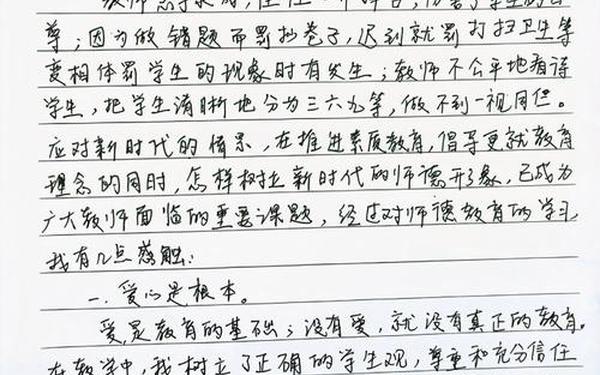 尊；因为做错题而罚抄卷子，迟到就罚打扫卫生等
变相体罚学生的现象时有发生；教师不公平地看待
学生，把学生清晰地分为三六九等，做不到一视同仁。
应对新时代的情景，在推进素质教育，倡导更新教育
理念的同时，怎样树立新时代的师德形象，已成为
广大教师面临的重要课题，经过对师德教育的学习
我有几点感触：
一、爱心是根本。
爱，是教育的基础；没有爱，就没有真正的教育。
在教学中，我树立了正确的学生观，尊重和充分信任